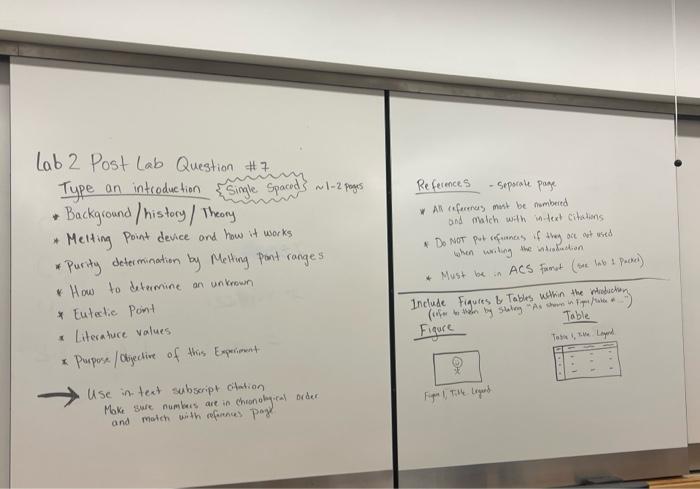 Lab 2 Post Lab Question #7
Type an introduction {Single Spaced} ~1-2 pages
* Background/history/Theory
* Melting Point device and how it works
* Purity determination by Melting Point ranges
* How to determine an unknown
* Eutectic Point
* Literature values
* Purpose/Objective of this Experiment
→ Use in text subscript citation
Make sure numbers are in chronological order
and match with references page.
References - Separate page
* All references must be numbered
and match with in-text citations
* Do NOT put references if they are not used
when writing the introduction
* Must be in ACS format (see lab 1 packet)
Include Figures & Tables within the introduction
(refer to them by stating "As shown in Figure/table #...")
Figure
Figure 1, Title. Legend
Table
Table 1, Title. Legend